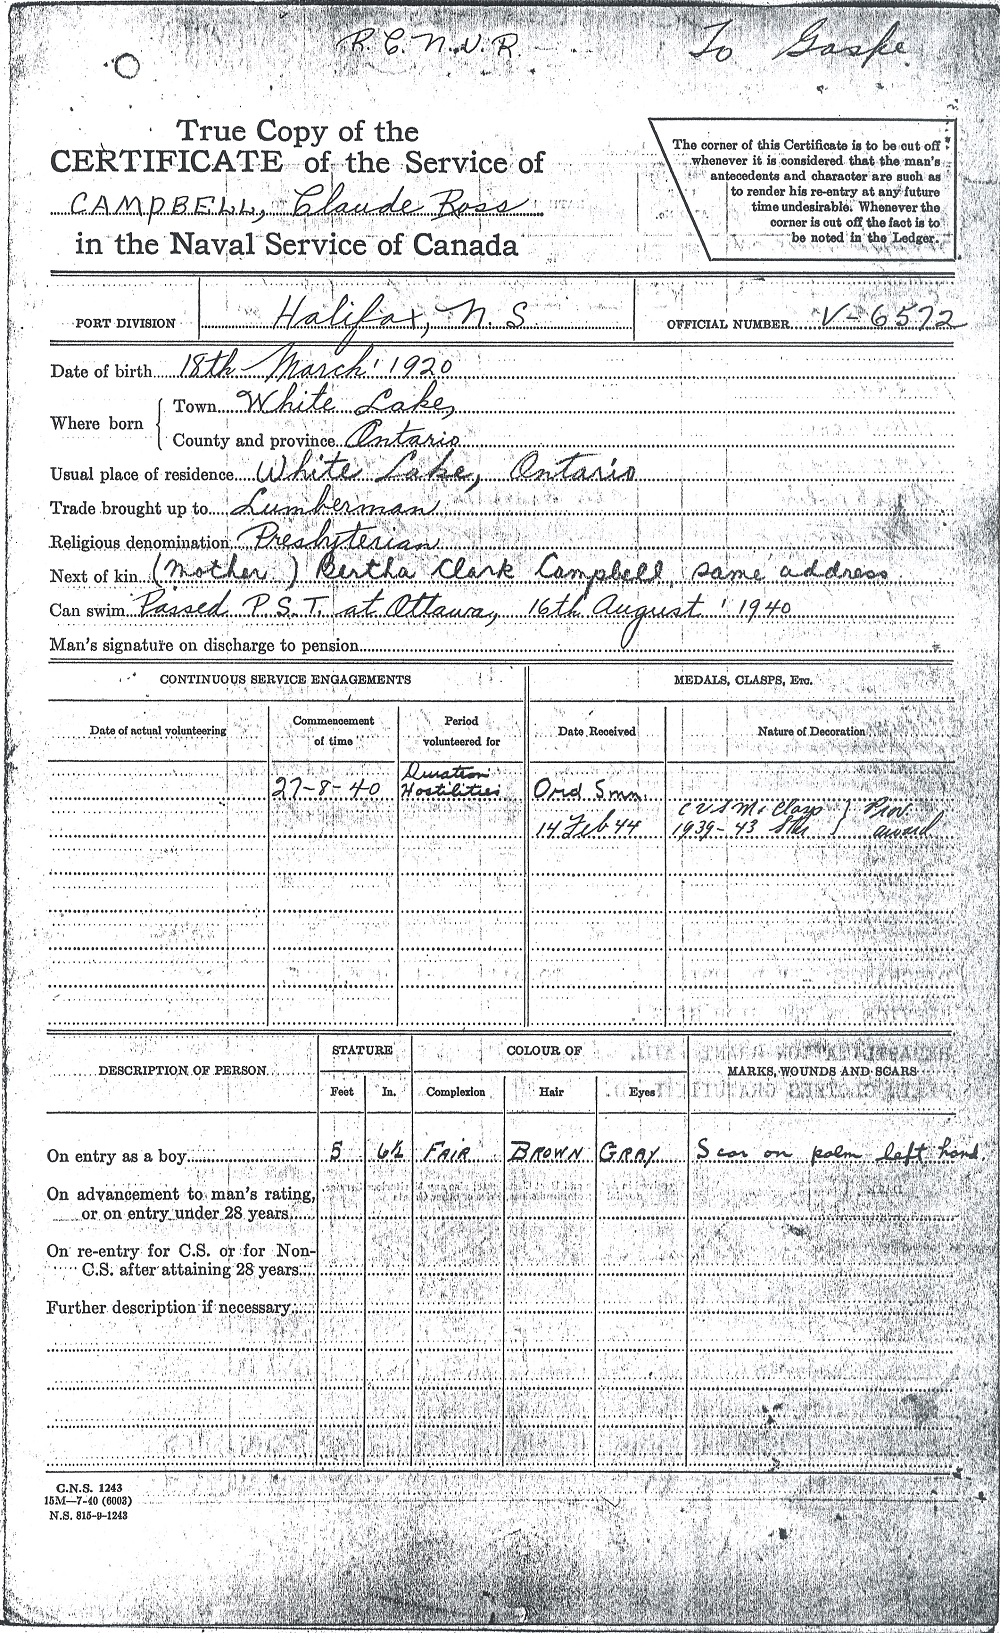 R.C.N.V.R. To Gaspe
True Copy of the
CERTIFICATE of the Service of
CAMPBELL, Claude Ross
in the Naval Service of Canada
The corner of this Certificate is to be cut off
whenever it is considered that the man's
antecedents and character are such as
to render his re-entry at any future
time undesirable. Whenever the
corner is cut off the fact is to
be noted in the Ledger.
PORT DIVISION Halifax, N.S. OFFICIAL NUMBER V-6572
Date of birth 18th March 1920
Where born Town White Lake,
County and province Ontario
Usual place of residence White Lake, Ontario
Trade brought up to Lumberman
Religious denomination Presbyterian
Next of kin (mother) Bertha Clark Campbell, same address
Can swim Passed P.S.T. at Ottawa, 16th August 1940
Man's signature on discharge to pension
CONTINUOUS SERVICE ENGAGEMENTS MEDALS, CLASPS, ETC.
Date of actual volunteering Commencement of time Period volunteered for Date Received Nature of Decoration
27-8-40 Duration Hostilities Ord Smn.
14 Feb 44 CVSM & Clasp } Prov.
1939-43 Star } award
DESCRIPTION OF PERSON STATURE COLOUR OF MARKS, WOUNDS AND SCARS
Feet In. Complexion Hair Eyes
On entry as a boy 5 6½ FAIR BROWN GRAY Scar on palm left hand.
On advancement to man's rating,
or on entry under 28 years
On re-entry for C.S. or for Non-
C.S. after attaining 28 years
Further description if necessary
C.N.S. 1243
15M—7-40 (6003)
N.S. 815-9-1243